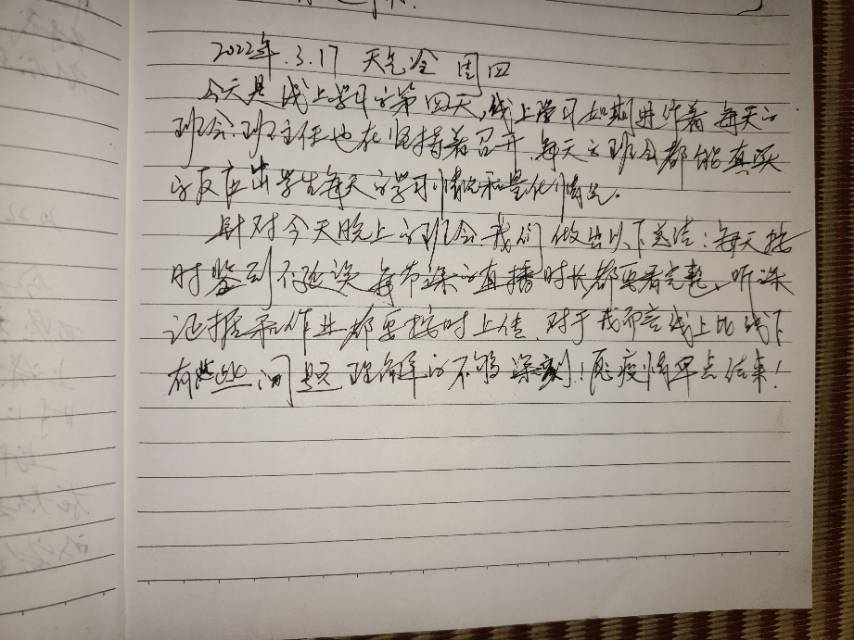 2022年.3.17 天气冷 周四
今天是线上学习的第四天,线上学习如期进行着 每天的
班会.班主任也在坚持着召开.每天的班会都能真实
的反应出学生每天的学习情况和量化情况.
针对今天晚上的班会.我们做出以下总结:每天按
时鉴到不耽误 每节课的直播时长都要看完整、听课
证据和作业都要按时上传.对于我而言线上比线下
有些些问题理解的不够深刻!愿疫情早点结束!